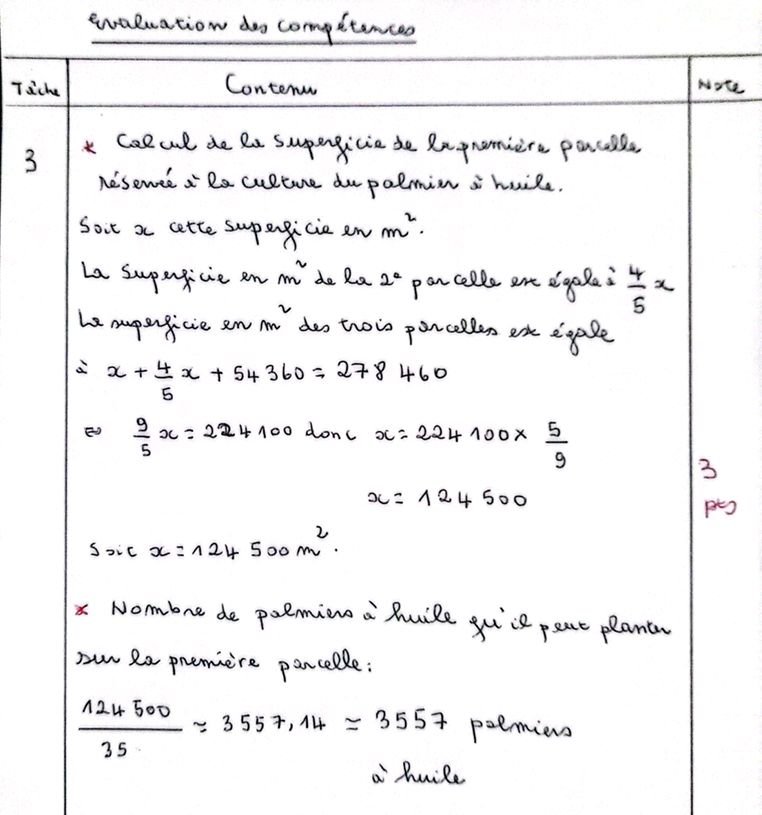 Evaluation des compétences
Tâche Contenu Note
3 * Calcul de la superficie de la première parcelle
réservée à la culture du palmier à huile.
Soit x cette superficie en m².
La superficie en m² de la 2e parcelle est égale à 4/5 x
La superficie en m² des trois parcelles est égale
à x + 4/5 x + 54 360 = 278 460
⇔ 9/5 x = 224 100 donc x = 224 100 × 5/9
x = 124 500
3 pts
Soit x = 124 500 m².
* Nombre de palmiers à huile qu'il peut planter
sur la première parcelle :
124 500/35 ≃ 3557,14 ≃ 3557 palmiers
à huile